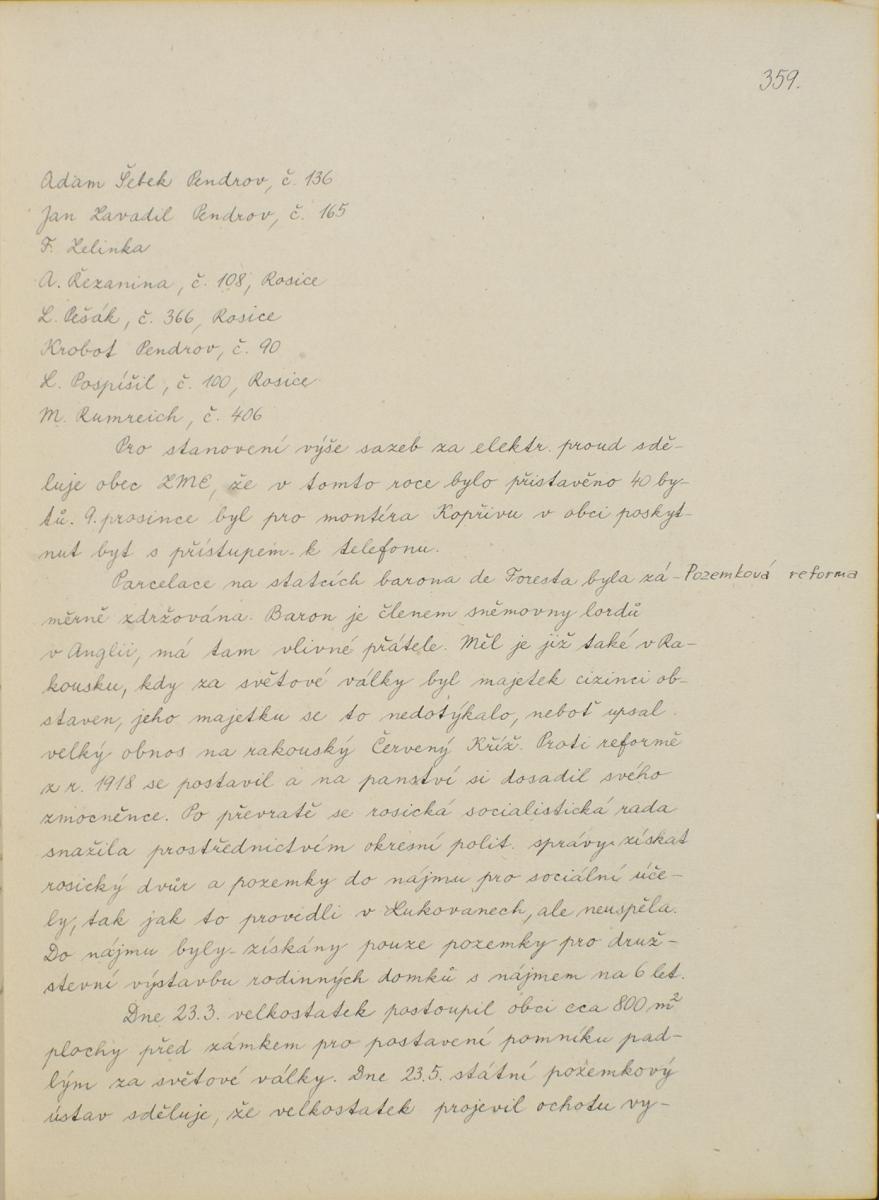 359.
Adam Šebek Pendrov, č. 136
Jan Zavadil Pendrov, č. 165
F. Zelinka
A. Řezanina, č. 108, Rosice
L. Pešák, č. 366, Rosice
Krobot Pendrov, č. 90
L. Pospíšil, č. 100, Rosice
M. Rumreich, č. 406
Pro stanovení výše sazeb za elektr. proud sdě-
luje obec ZME, že v tomto roce bylo přistavěno 40 by-
tů. 9. prosince byl pro montéra Kopřivu v obci poskyt-
nut byt s přístupem k telefonu.
Parcelace na statcích barona de Foresta byla zá- Pozemková reforma
měrně zdržována. Baron je členem sněmovny lordů
v Anglii, má tam vlivné přátele. Měl je již také v Ra-
kousku, kdy za světové války byl majetek cizinci ob-
staven, jeho majetku se to nedotýkalo, neboť upsal
velký obnos na rakouský Červený Kříž. Proti reformě
z r. 1918 se postavil a na panství si dosadil svého
zmocněnce. Po převratě se rosická socialistická rada
snažila prostřednictvím okresní polit. správy získat
rosický dvůr a pozemky do nájmu pro sociální úče-
ly, tak jak to providli v Lukovanech, ale neuspěla.
Do nájmu byly získány pouze pozemky pro druž-
stevní výstavbu rodinných domků s nájmem na 6 let.
Dne 23.3. velkostatek postoupil obci cca 800 m²
plochy před zámkem pro postavení pomníku pad-
lým za světové války. Dne 23.5. státní požemkový
ústav sděluje, že velkostatek projevil ochotu vy-